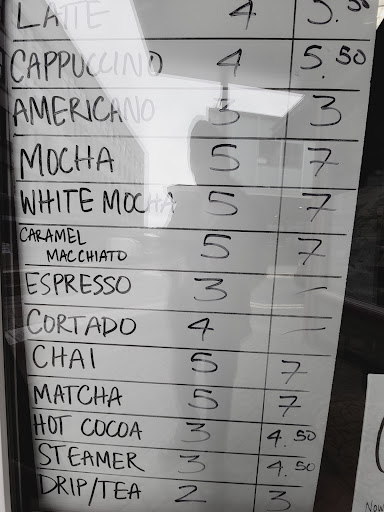 LATTE 4 5.50
CAPPUCCINO 4 5.50
AMERICANO 3 3
MOCHA 5 7
WHITE MOCHA 5 7
CARAMEL
MACCHIATO 5 7
ESPRESSO 3 –
CORTADO 4 –
CHAI 5 7
MATCHA 5 7
HOT COCOA 3 4.50
STEAMER 3 4.50
DRIP/TEA 2 3
Now